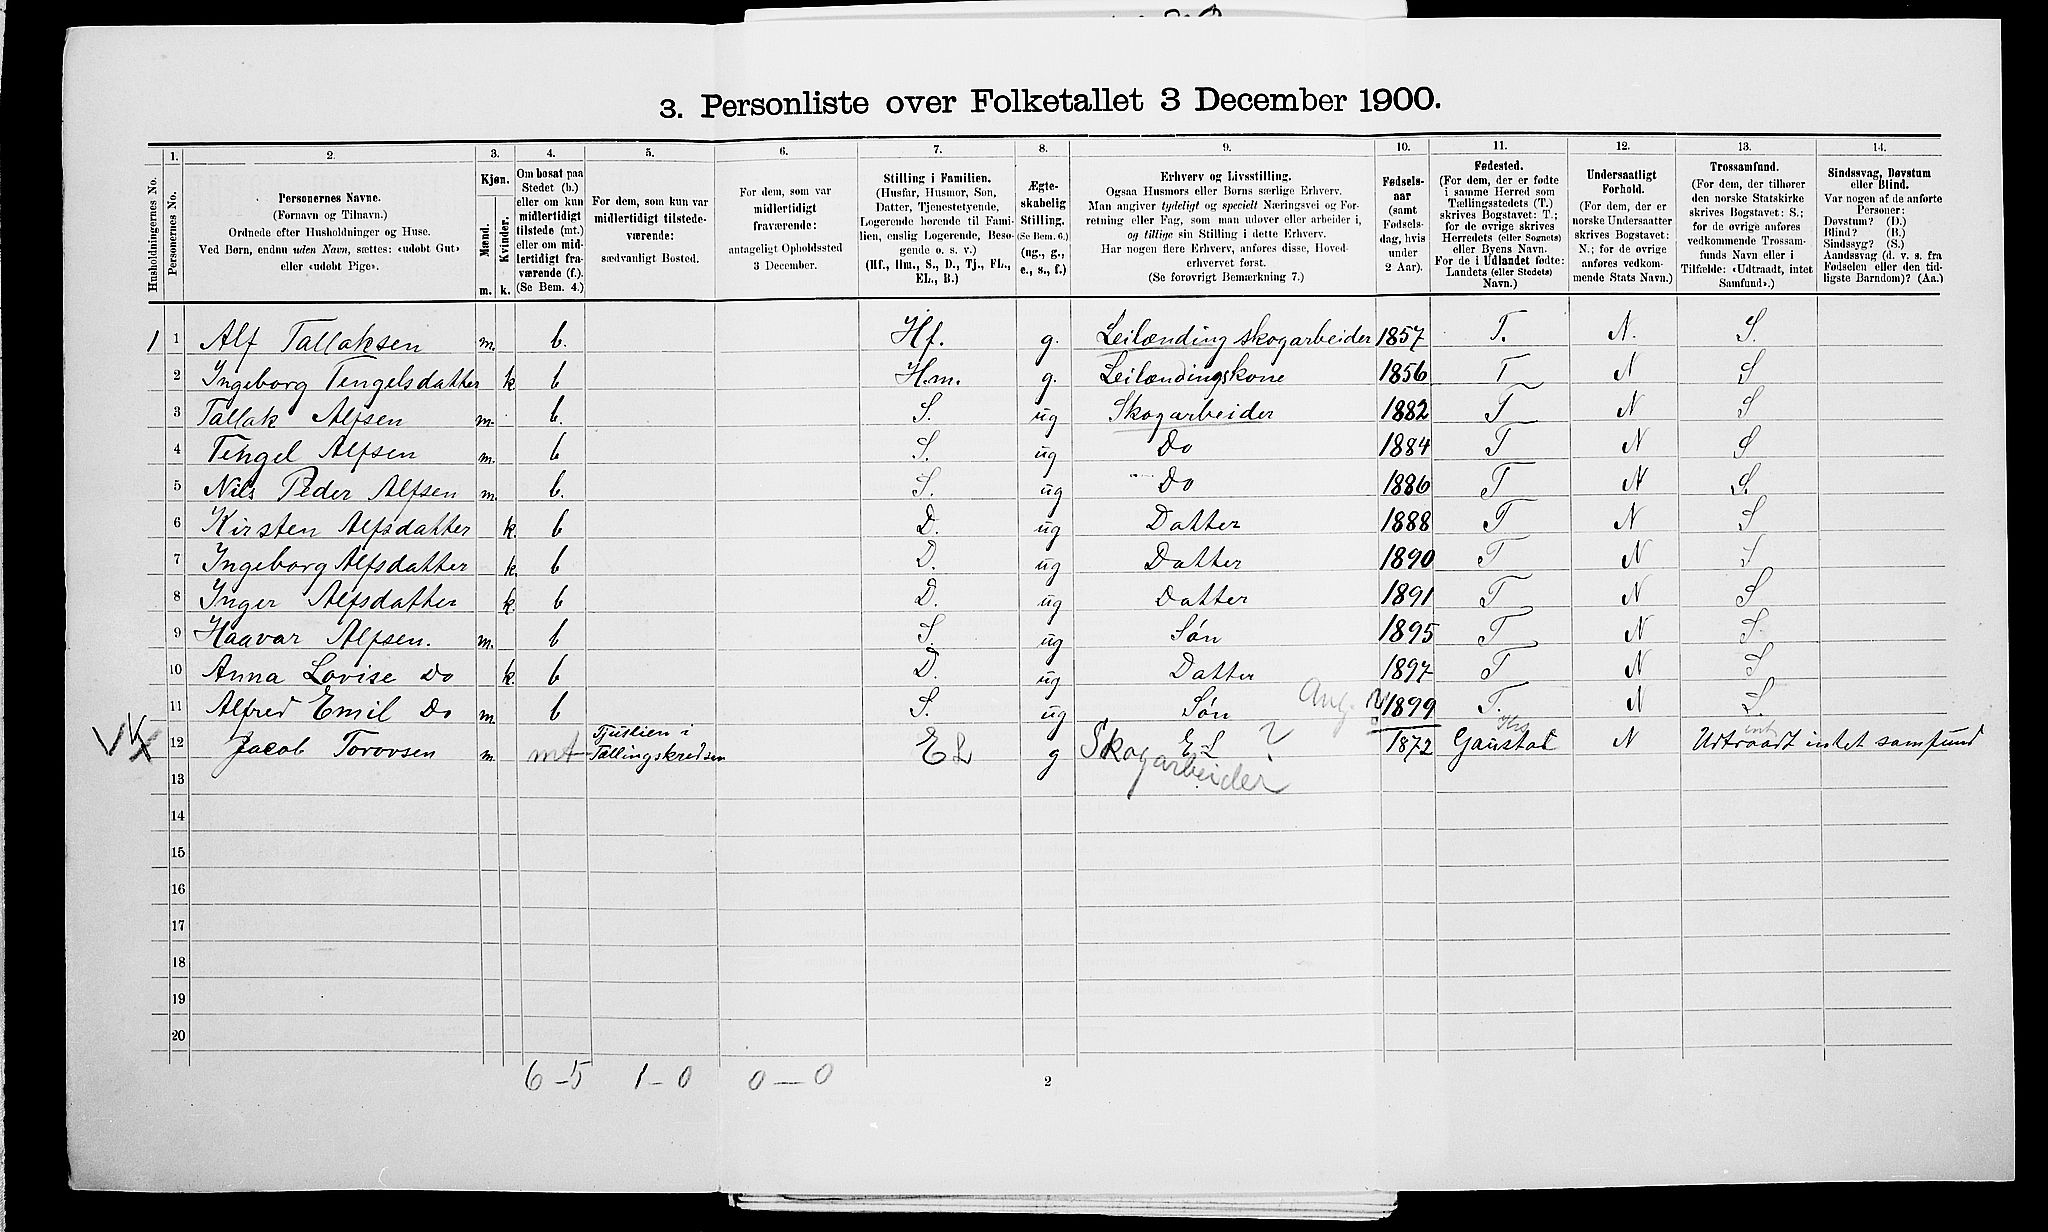 3. Personliste over Folketallet 3 December 1900.
1. 2. 3. 4. 5. 6. 7. 8. 9. 10. 11. 12. 13. 14.
Husholdningernes No.
Personernes No.
Personernes Navne.
(Fornavn og Tilnavn.)
Ordnede efter Husholdninger og Huse.
Ved Børn, endnu uden Navn, sættes: «udøbt Gut»
eller «udøbt Pige».
Kjøn.
Mænd.
Kvinder.
m. k.
Om bosat paa
Stedet (b.)
eller om kun
midlertidigt
tilstede (mt.)
eller om mid-
lertidigt fra-
værende (f.).
(Se Bem. 4.)
For dem, som kun var
midlertidigt tilstede-
værende:
sædvanligt Bosted.
For dem, som var
midlertidigt
fraværende:
antageligt Opholdssted
3 December.
Stilling i Familien.
(Husfar, Husmor, Søn,
Datter, Tjenestetyende,
Logerende hørende til Fami-
lien, enslig Logerende, Besø-
gende o. s. v.)
(Hf., Hm., S., D., Tj., FL.,
EL., B.)
Ægte-
skabelig
Stilling.
(Se Bem. 6.)
(ug., g.,
e., s., f.)
Erhverv og Livsstilling.
Ogsaa Husmors eller Børns særlige Erhverv.
Man angiver tydeligt og specielt Næringsvei og For-
retning eller Fag, som man udøver eller arbeider i,
og tillige sin Stilling i dette Erhverv.
Har nogen flere Erhverv, anføres disse, Hoved-
erhvervet først.
(Se forøvrigt Bemærkning 7.)
Fødsels-
aar
(samt
Fødsels-
dag, hvis
under
2 Aar).
Fødested.
(For dem, der er fødte
i samme Herred som
Tællingsstedets (T.)
skrives Bogstavet: T.;
for de øvrige skrives
Herredets (eller Sognets)
eller Byens Navn.
For de i Udlandet fødte:
Landets (eller Stedets)
Navn.)
Undersaatligt
Forhold.
(For dem, der er
norske Undersaatter
skrives Bogstavet:
N.; for de øvrige
anføres vedkom-
mende Stats Navn.)
Trossamfund.
(For dem, der tilhører
den norske Statskirke
skrives Bogstavet: S.;
for de øvrige anføres
vedkommende Trossam-
funds Navn eller i
Tilfælde: «Udtraadt, intet
Samfund».)
Sindssvag, Døvstum
eller Blind.
Var nogen af de anførte
Personer:
Døvstum? (D.)
Blind? (B.)
Sindssyg? (S.)
Aandssvag (d. v. s. fra
Fødselen eller den tid-
ligste Barndom)? (Aa.)
1 1 Alf Tallaksen m. b. Hf. g. Leilænding skogarbeider 1857 T. N. S.
2 Ingeborg Tengelsdatter k b H.m. g. Leilændingskone 1856 T N S
3 Tallak Alfsen m. b. S. ug Skogarbeider 1882 T N S
4 Tengel Alfsen m. b S. ug Do 1884 T N S
5 Nils Peder Alfsen m. b. S. ug Do 1886 T N S.
6 Kirsten Alfsdatter k. b D. ug Datter 1888 T N S
7 Ingeborg Alfsdatter k. b D. ug Datter 1890 T N S
8 Inger Alfsdatter k. b D. ug Datter 1891 T N S
9 Haavar Alfsen. m. b S. ug Søn 1895 T N S.
10 Anna Lovise Do k. b D. ug Datter 1897 T N S
11 Alfred Emil Do m. b S. ug Søn 1899 T. N S
12 Jacob Torovsen m mt Tjuslien i Tællingskredsen EL g EL Skogarbeider 1872 Gaustad N Udtraadt intet samfund
13
14
15
16
17
18
19
20
6–5 1–0 0–0
2